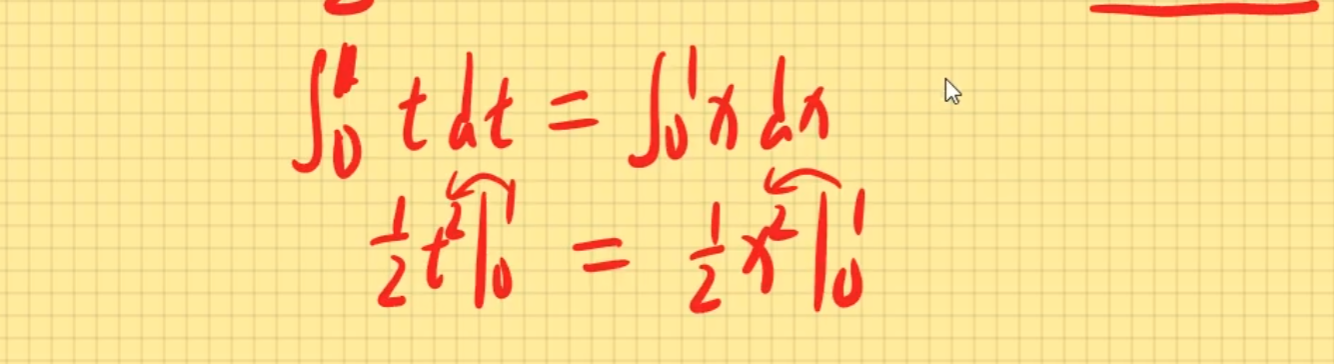 ∫₀¹ t dt = ∫₀¹ x dx
½ t² |₀¹ = ½ x² |₀¹